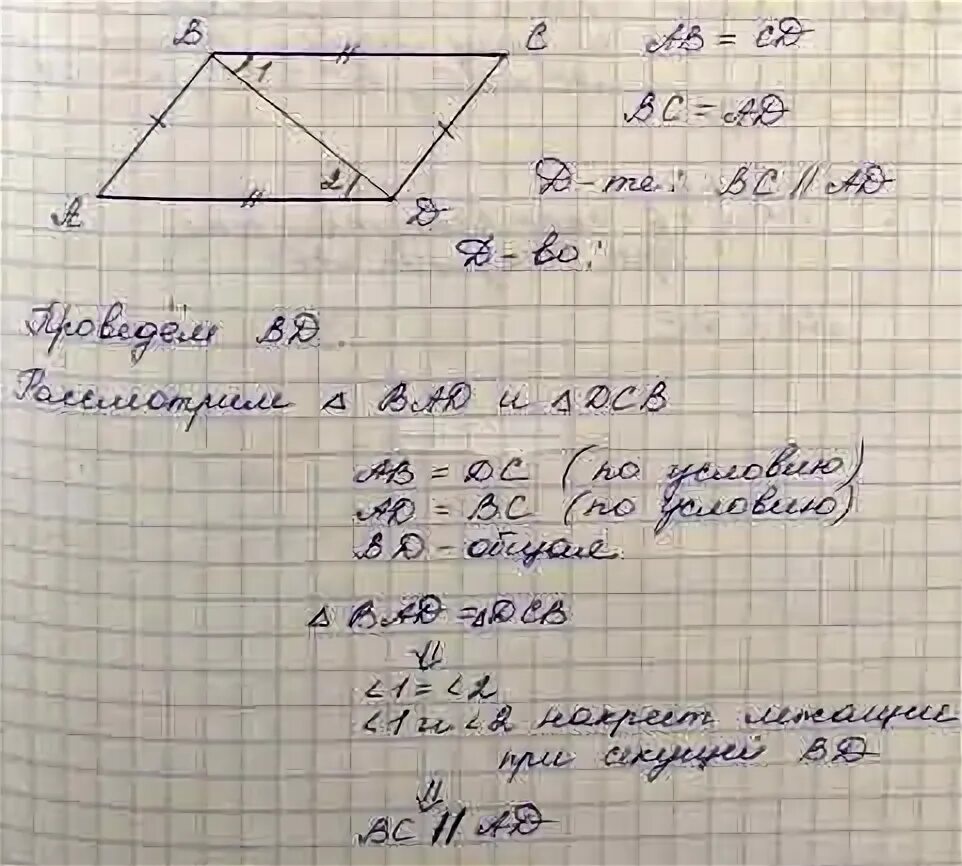 B
C
1
2
A
D
AB = CD
BC = AD
Д-ть: BC || AD
Д-во:
Проведем BD.
Рассмотрим △ BAD и △ DCB
AB = DC (по условию)
AD = BC (по условию)
BD - общая.
△ BAD = △ DCB
⇓
∠1 = ∠2
∠1 и ∠2 накрест лежащие
при секущей BD
⇓
BC || AD